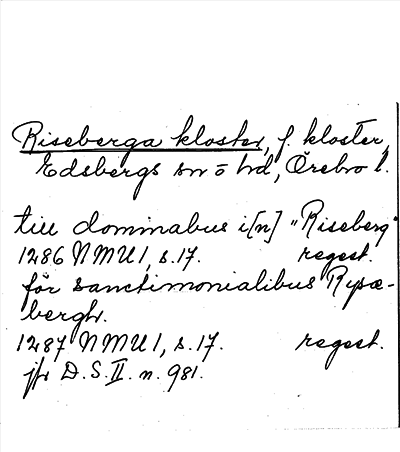 Riseberga kloster, f. kloster,
Edsbergs sn o hd, Örebro l.
till dominabus i[n] "Riseberg"
1286 NMU 1, s. 17. regest.
för sanctimonialibus Rysæ-
bergh.
1287 NMU 1, s. 17. regest.
jfr D.S. II. n. 981.